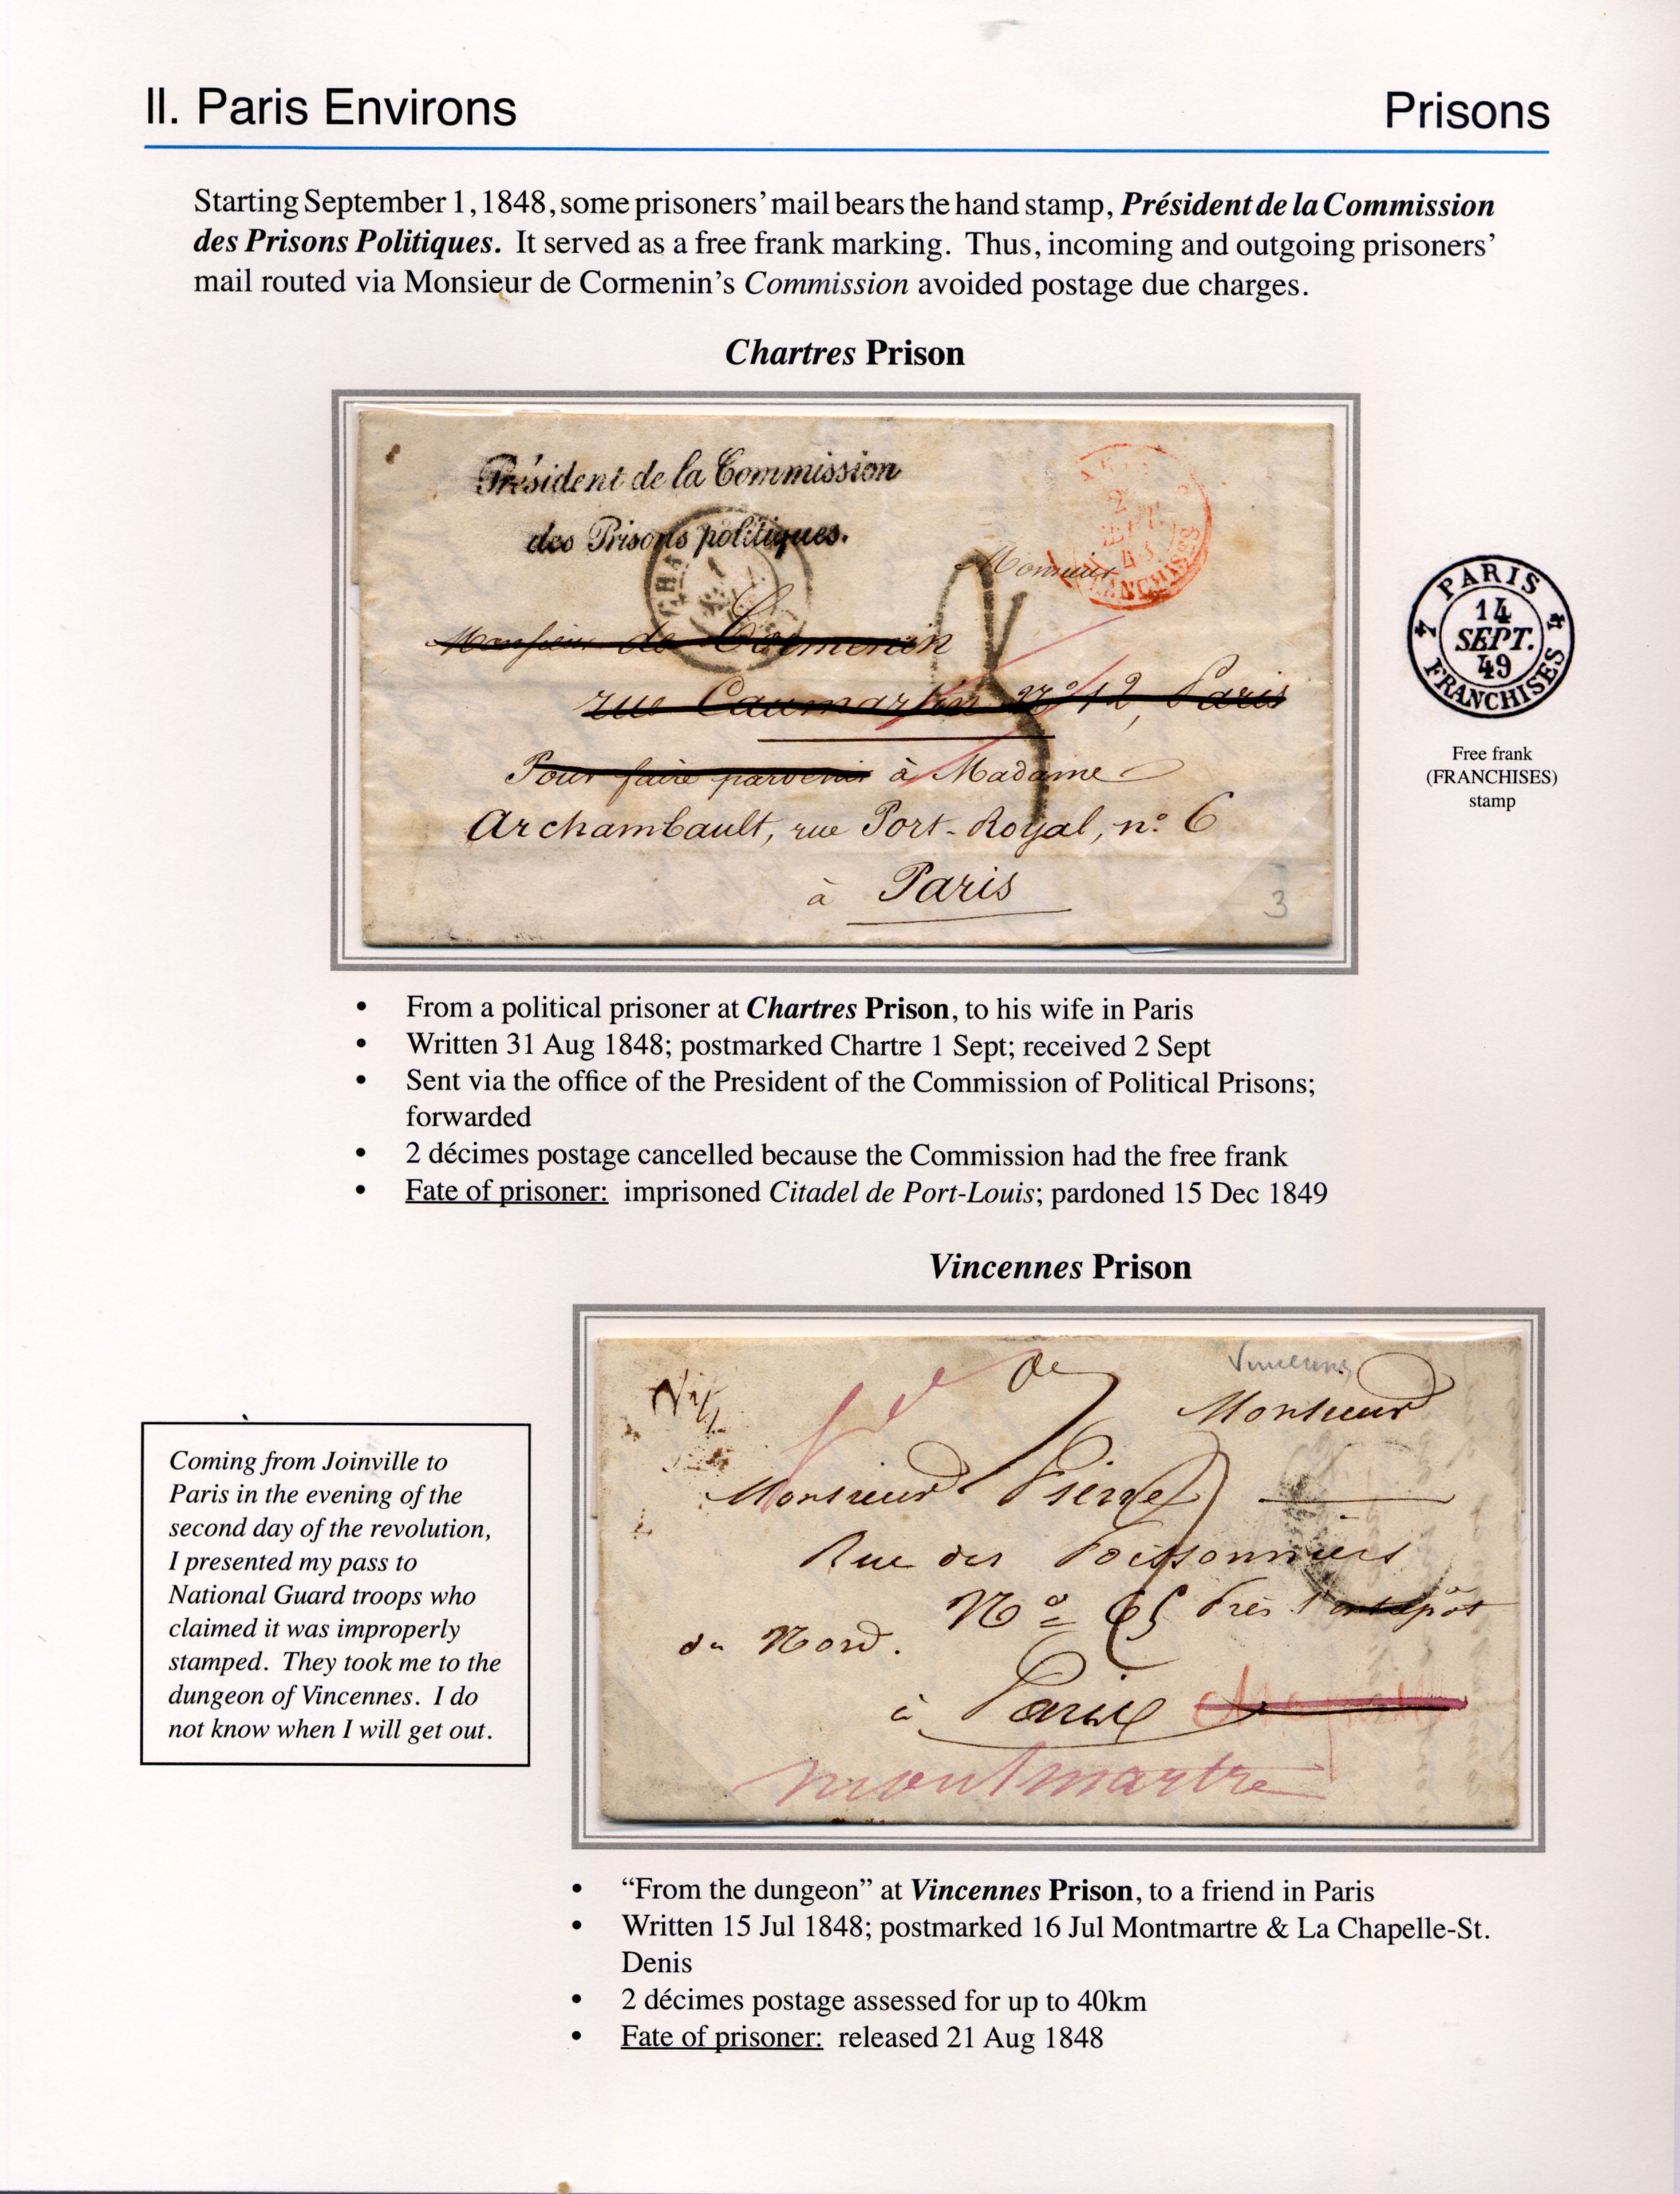 II. Paris Environs
Prisons
Starting September 1, 1848, some prisoners' mail bears the hand stamp, Président de la Commission
des Prisons Politiques. It served as a free frank marking. Thus, incoming and outgoing prisoners'
mail routed via Monsieur de Cormenin's Commission avoided postage due charges.
Chartres Prison
Président de la Commission
des Prisons politiques.
Monsieur
Monsieur de Cormenin
rue Caumartin nº 12, Paris
Pour faire parvenir à Madame
Archambault, rue Port-Royal, nº 6
à Paris
3
PARIS
14
SEPT.
49
FRANCHISES
Free frank
(FRANCHISES)
stamp
• From a political prisoner at Chartres Prison, to his wife in Paris
• Written 31 Aug 1848; postmarked Chartre 1 Sept; received 2 Sept
• Sent via the office of the President of the Commission of Political Prisons;
forwarded
• 2 décimes postage cancelled because the Commission had the free frank
• Fate of prisoner: imprisoned Citadel de Port-Louis; pardoned 15 Dec 1849
Vincennes Prison
Coming from Joinville to
Paris in the evening of the
second day of the revolution,
I presented my pass to
National Guard troops who
claimed it was improperly
stamped. They took me to the
dungeon of Vincennes. I do
not know when I will get out.
Vincennes
Monsieur
Monsieur Pierre
Rue des Poissonniers
Nº 65 Près
du Nord.
à Paris
montmartre
• "From the dungeon" at Vincennes Prison, to a friend in Paris
• Written 15 Jul 1848; postmarked 16 Jul Montmartre & La Chapelle-St.
Denis
• 2 décimes postage assessed for up to 40km
• Fate of prisoner: released 21 Aug 1848